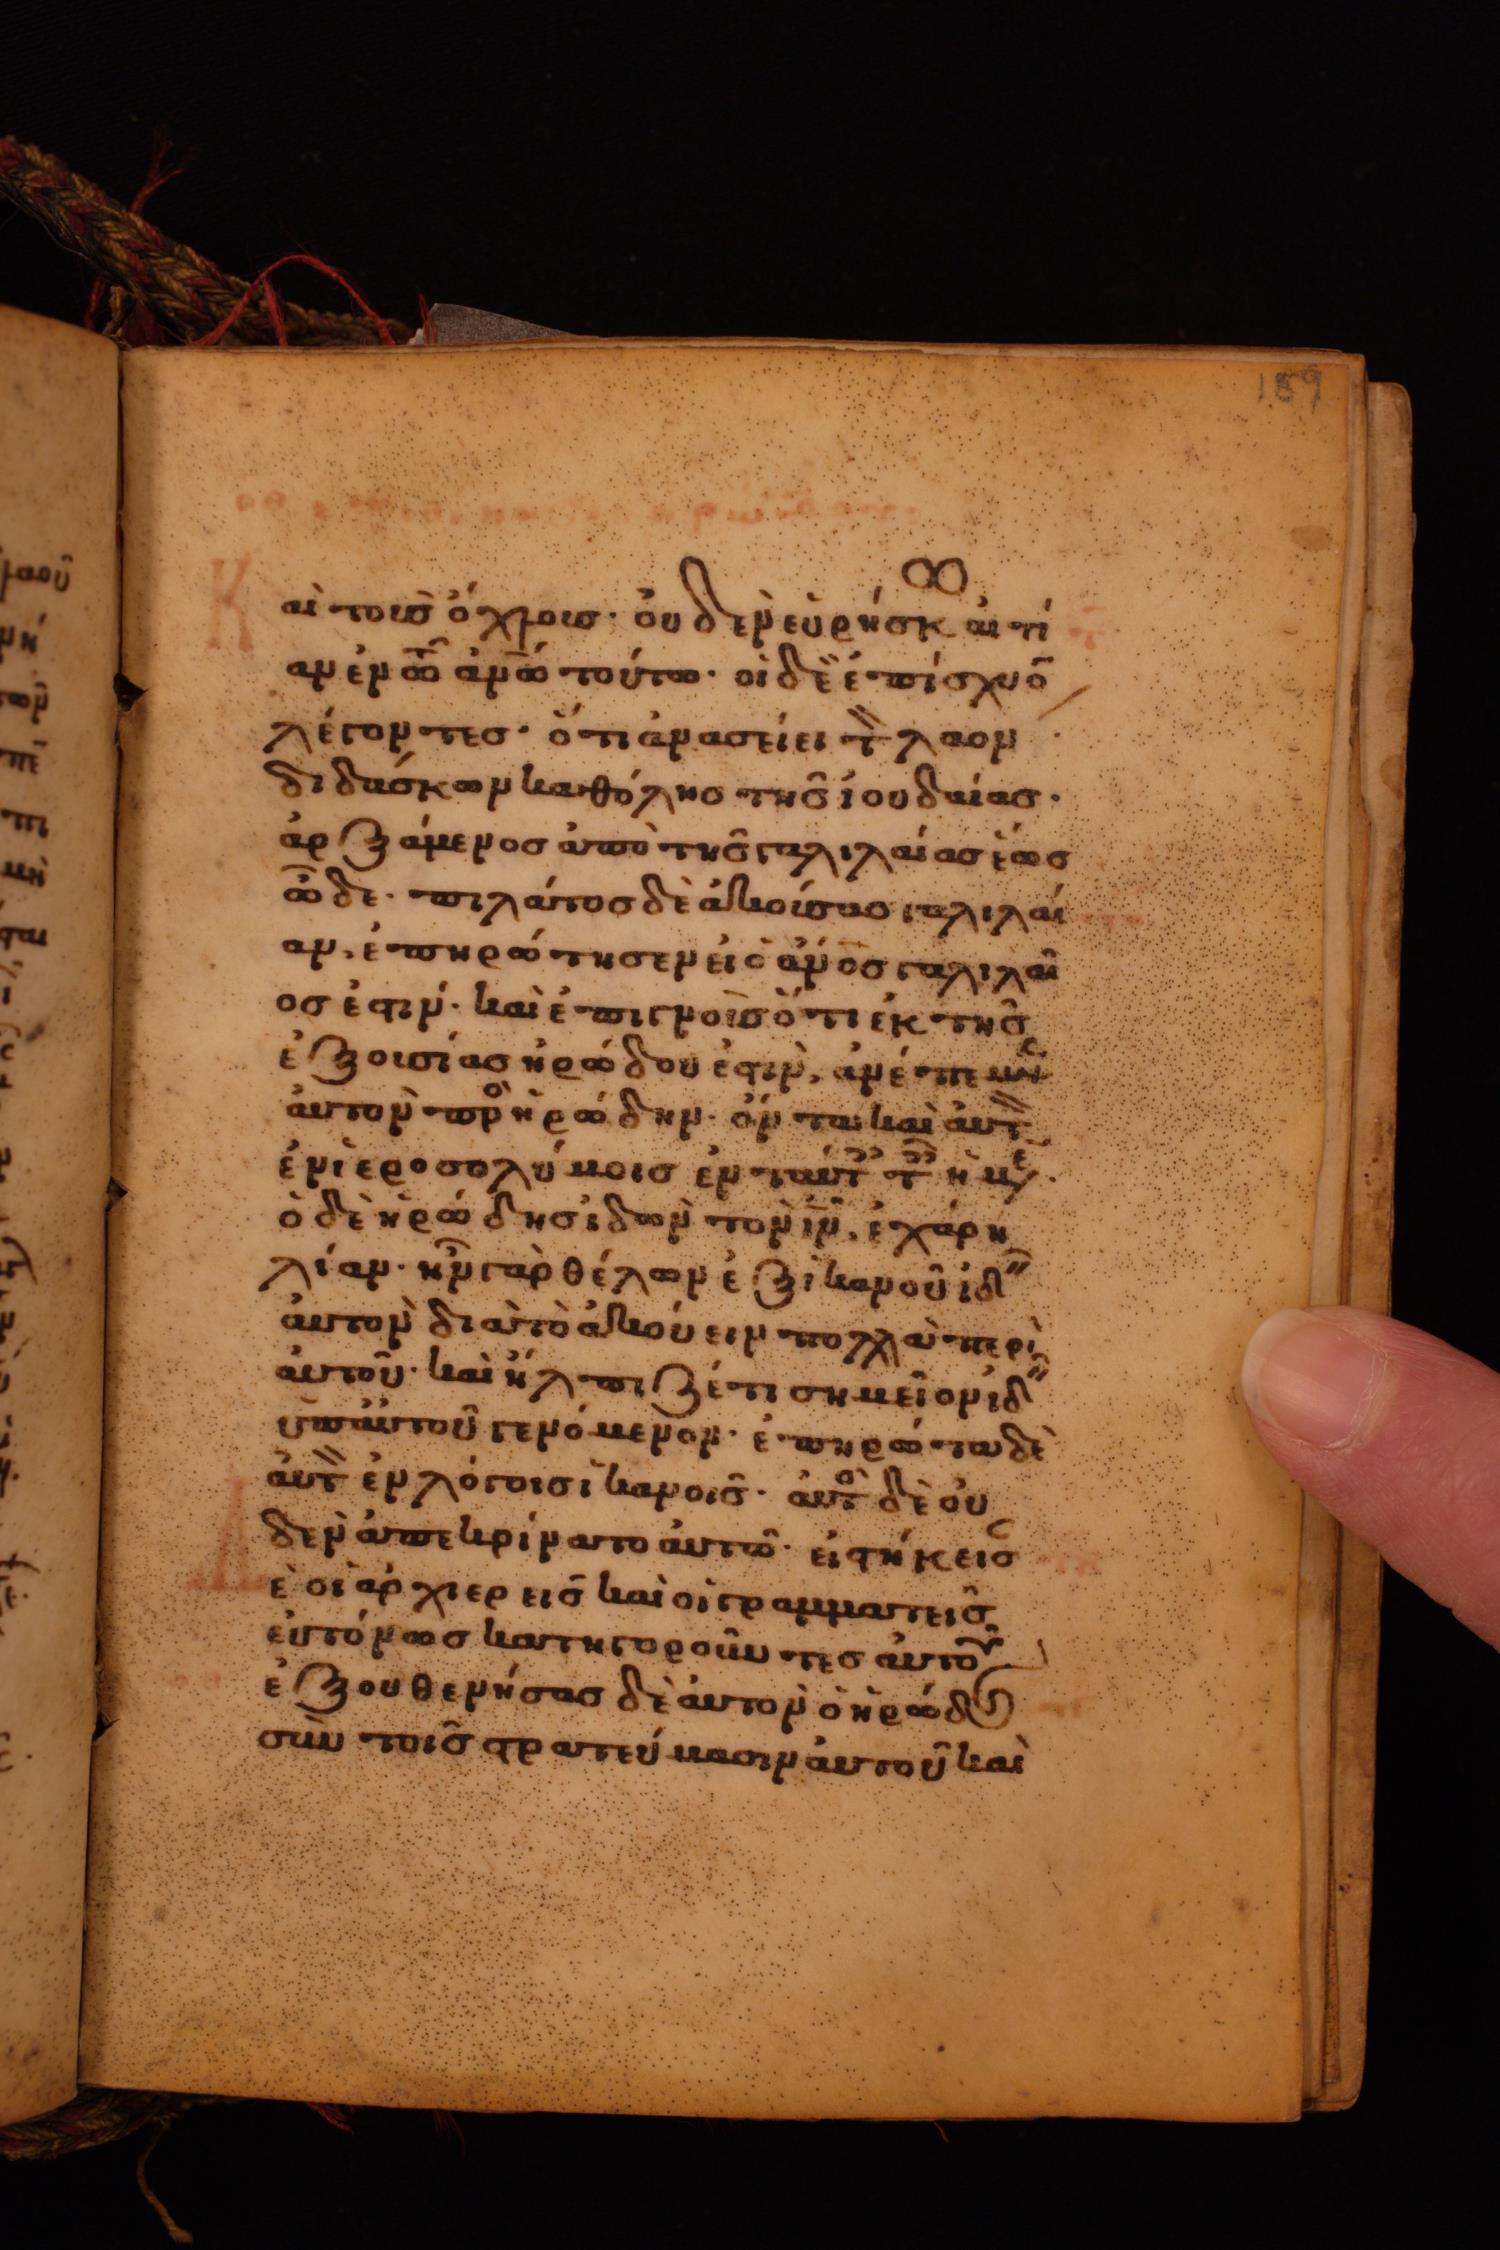 189
Καὶ τοὺς ὄχλους· οὐδὲν εὑρίσκω αἴτι
ον ἐν τῶ ἀνω τούτω· οἱ δὲ ἐπίσχυο
λέγοντες· ὅτι ἀνασείει τὸν λαὸν
διδάσκων καθόλης τῆς ἰουδαίας·
ἀρξάμενος ἀπὸ τῆς γαλιλαίας ἕως
ὧδε· πιλάτος δὲ ἀκούσας γαλιλαί
αν, ἐπηρώτησεν εἰ ὁ ἀνος γαλιλαῖ
ος ἐστιν· καὶ ἐπιγνοὺς ὅτι ἐκ τῆς
ἐξουσίας ἡρώδου ἐστὶν, ἀνέπεμψεν
αὐτὸν πρὸς ἡρώδην· ὄντα καὶ αὐτὸν
ἐν ἱεροσολύμοις ἐν ταύταις ταῖς ἡμέραις·
ὁ δὲ ἡρώδης ἰδὼν τὸν ιν, ἐχάρη
λίαν· ἦν γὰρ θέλων ἐξ ἱκανοῦ ἰδεῖν
αὐτὸν διὰ τὸ ἀκούειν πολλὰ περὶ
αὐτοῦ· καὶ ἤλπιζέ τι σημεῖον ἰδεῖν
ὑπ αὐτοῦ γενόμενον· ἐπηρώτα δὲ
αὐτὸν ἐν λόγοις ἱκανοῖς· αὐτὸς δὲ οὐ
δὲν ἀπεκρίνατο αὐτῶ· εἱστήκεισ
Δὲ οἱ ἀρχιερεῖς καὶ οἱ γραμματεῖς
εὐτόνως κατηγοροῦντες αὐτοῦ
ἐξουθενήσας δὲ αὐτὸν ὁ ἡρώδης
σὺν τοῖς στρατεύμασιν αὐτοῦ καὶ